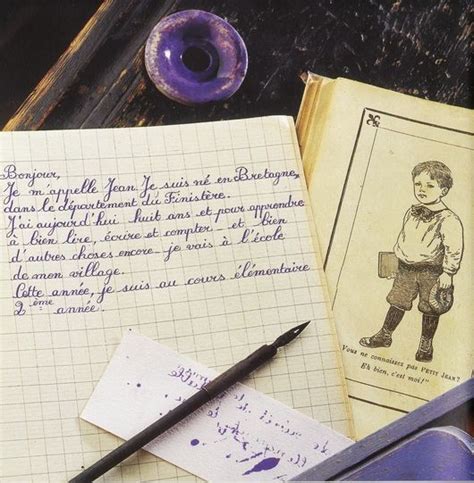 Bonjour,
Je m'appelle Jean. Je suis né en Bretagne,
dans le département du Finistère.
J'ai aujourd'hui huit ans et pour apprendre
à bien lire, écrire et compter et bien
d'autres choses encore je vais à l'école
de mon village.
Cette année, je suis au cours élémentaire
2ème année.
Vous ne connaissez pas PETIT JEAN?
Eh bien, c'est moi!"